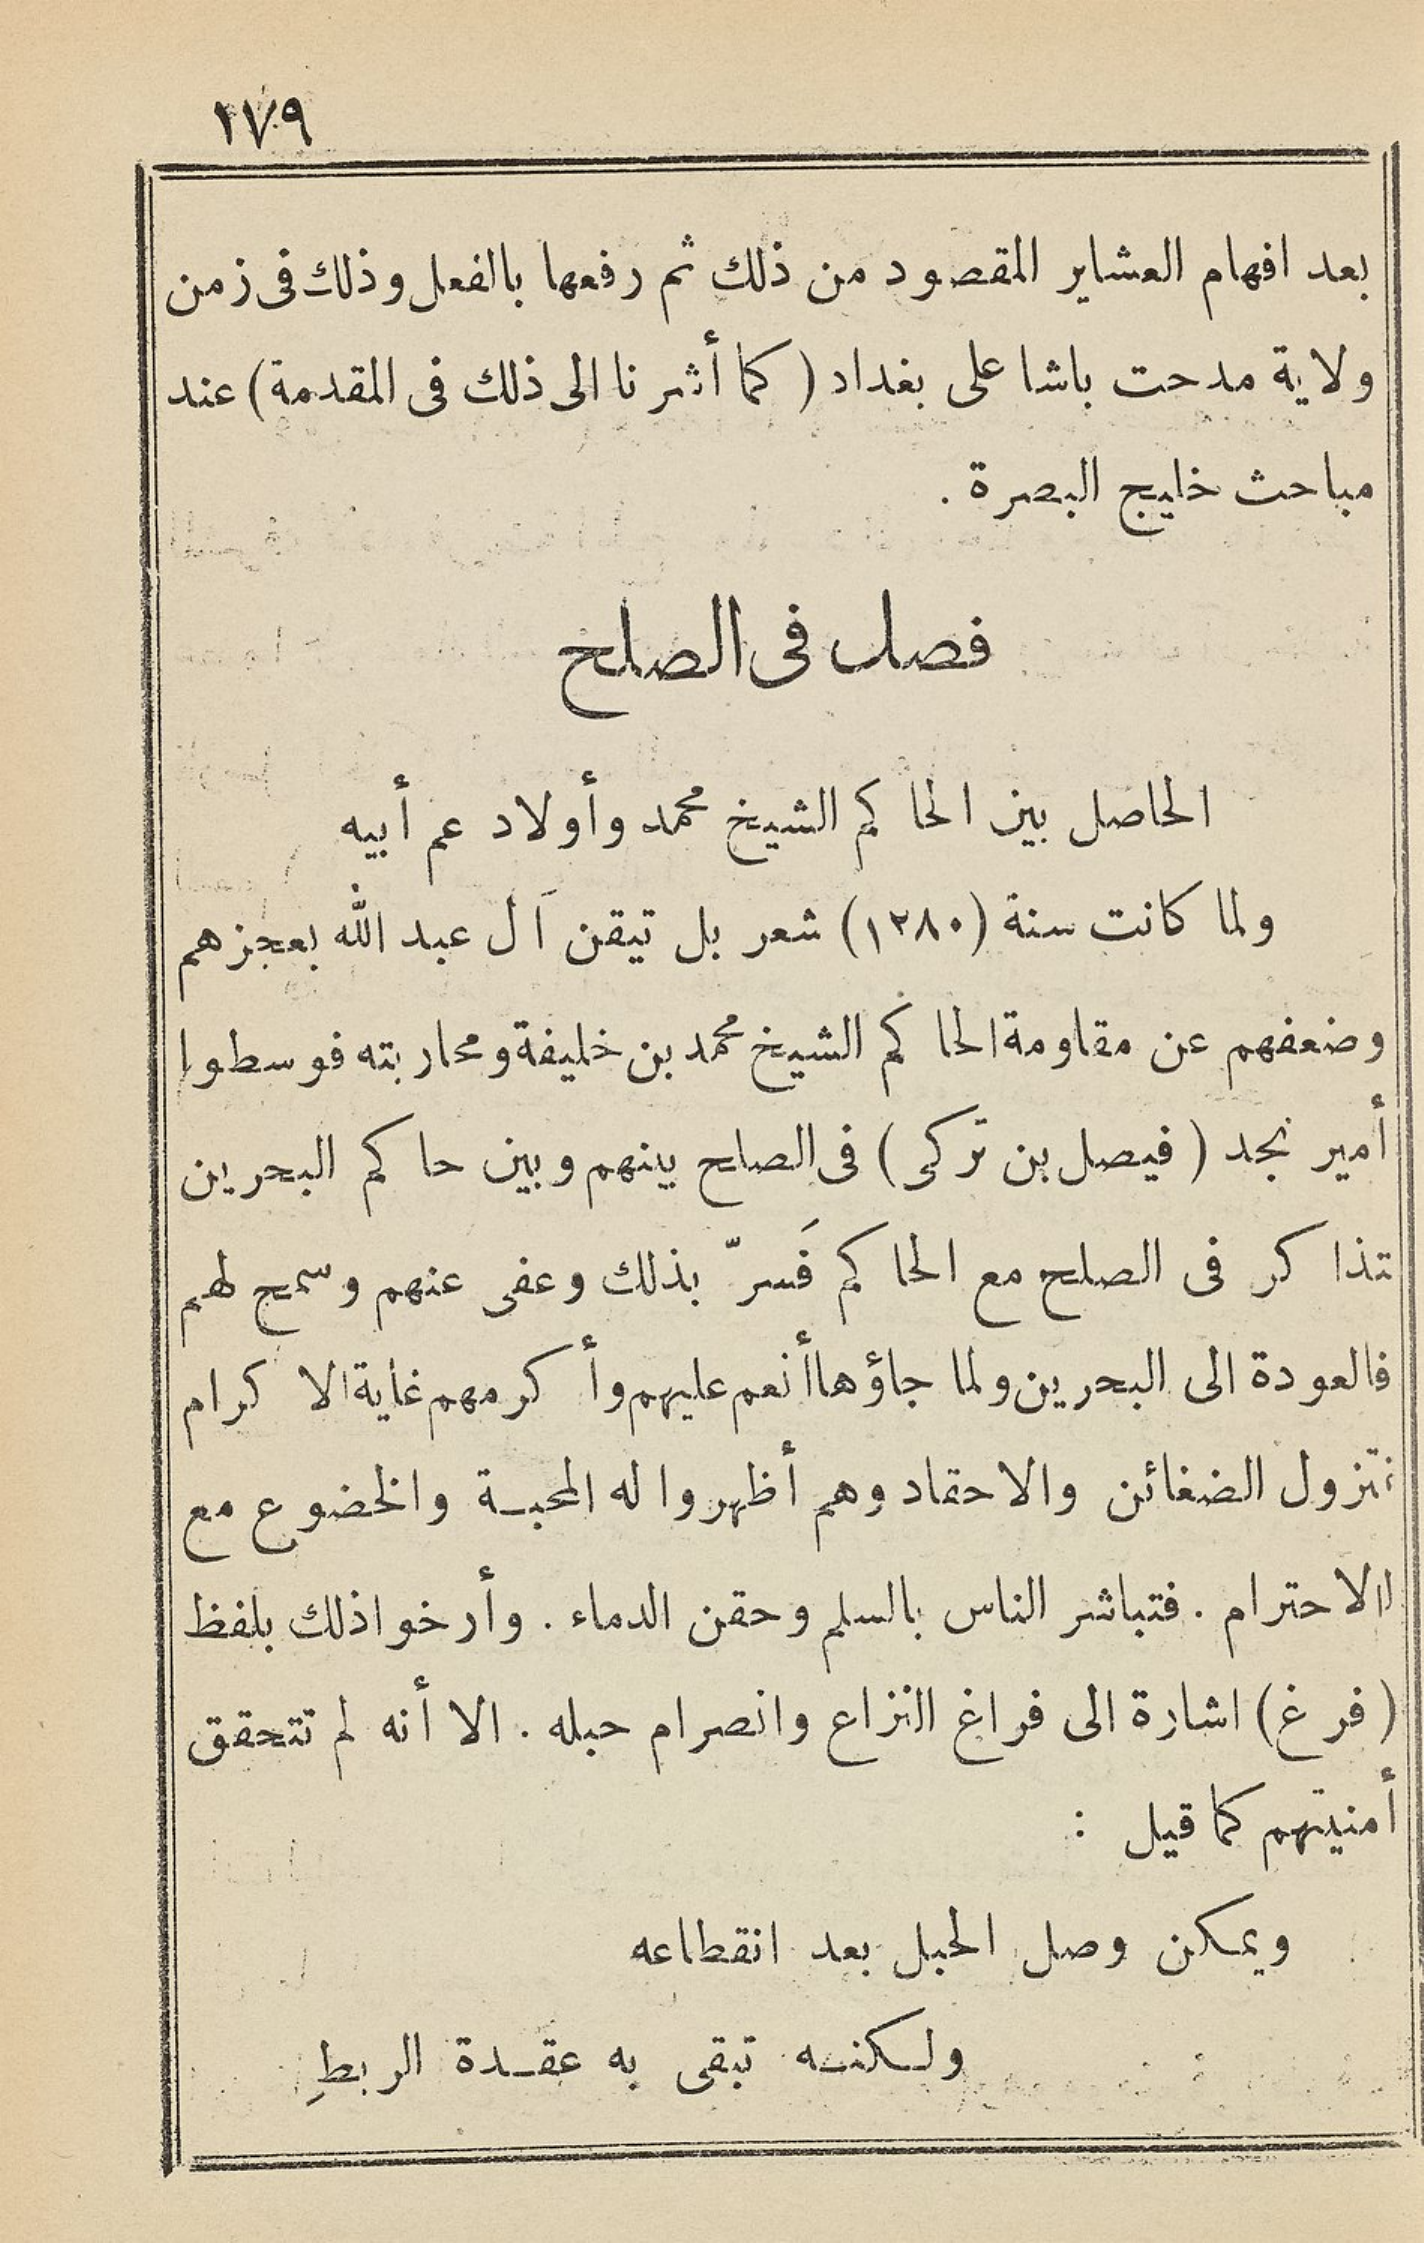 ١٧٩
بعد افهام العشاير المقصود من ذلك ثم رفعها بالفعل وذلك فى زمن
ولاية مدحت باشا على بغداد ( كما أشرنا الى ذلك فى المقدمة ) عند
مباحث خليج البصرة .
فصل فى الصلح
الحاصل بين الحاكم الشيخ محمد وأولاد عم أبيه
ولما كانت سنة (١٢٨٠) شعر بل تيقن آل عبد الله بعجزهم
وضعفهم عن مقاومة الحاكم الشيخ محمد بن خليفة ومحاربته فوسطوا
أمير نجد ( فيصل بن تركى ) فى الصلح بينهم وبين حاكم البحرين
تذاكر فى الصلح مع الحاكم فَسرّ بذلك وعفى عنهم وسمح لهم
فالعودة الى البحرين ولما جاؤها أنعم عليهم وأكرمهم غاية الاكرام
نتزول الضغائن والاحقاد وهم أظهروا له المحبة والخضوع مع
الاحترام . فتباشر الناس بالسلم وحقن الدماء . وأرخوا ذلك بلفظ
( فرغ ) اشارة الى فراغ النزاع وانصرام حبله . الا أنه لم تتحقق
أمنيتهم كما قيل :
ويمكن وصل الحبل بعد انقطاعه
ولكنه تبقى به عقدة الربطِ